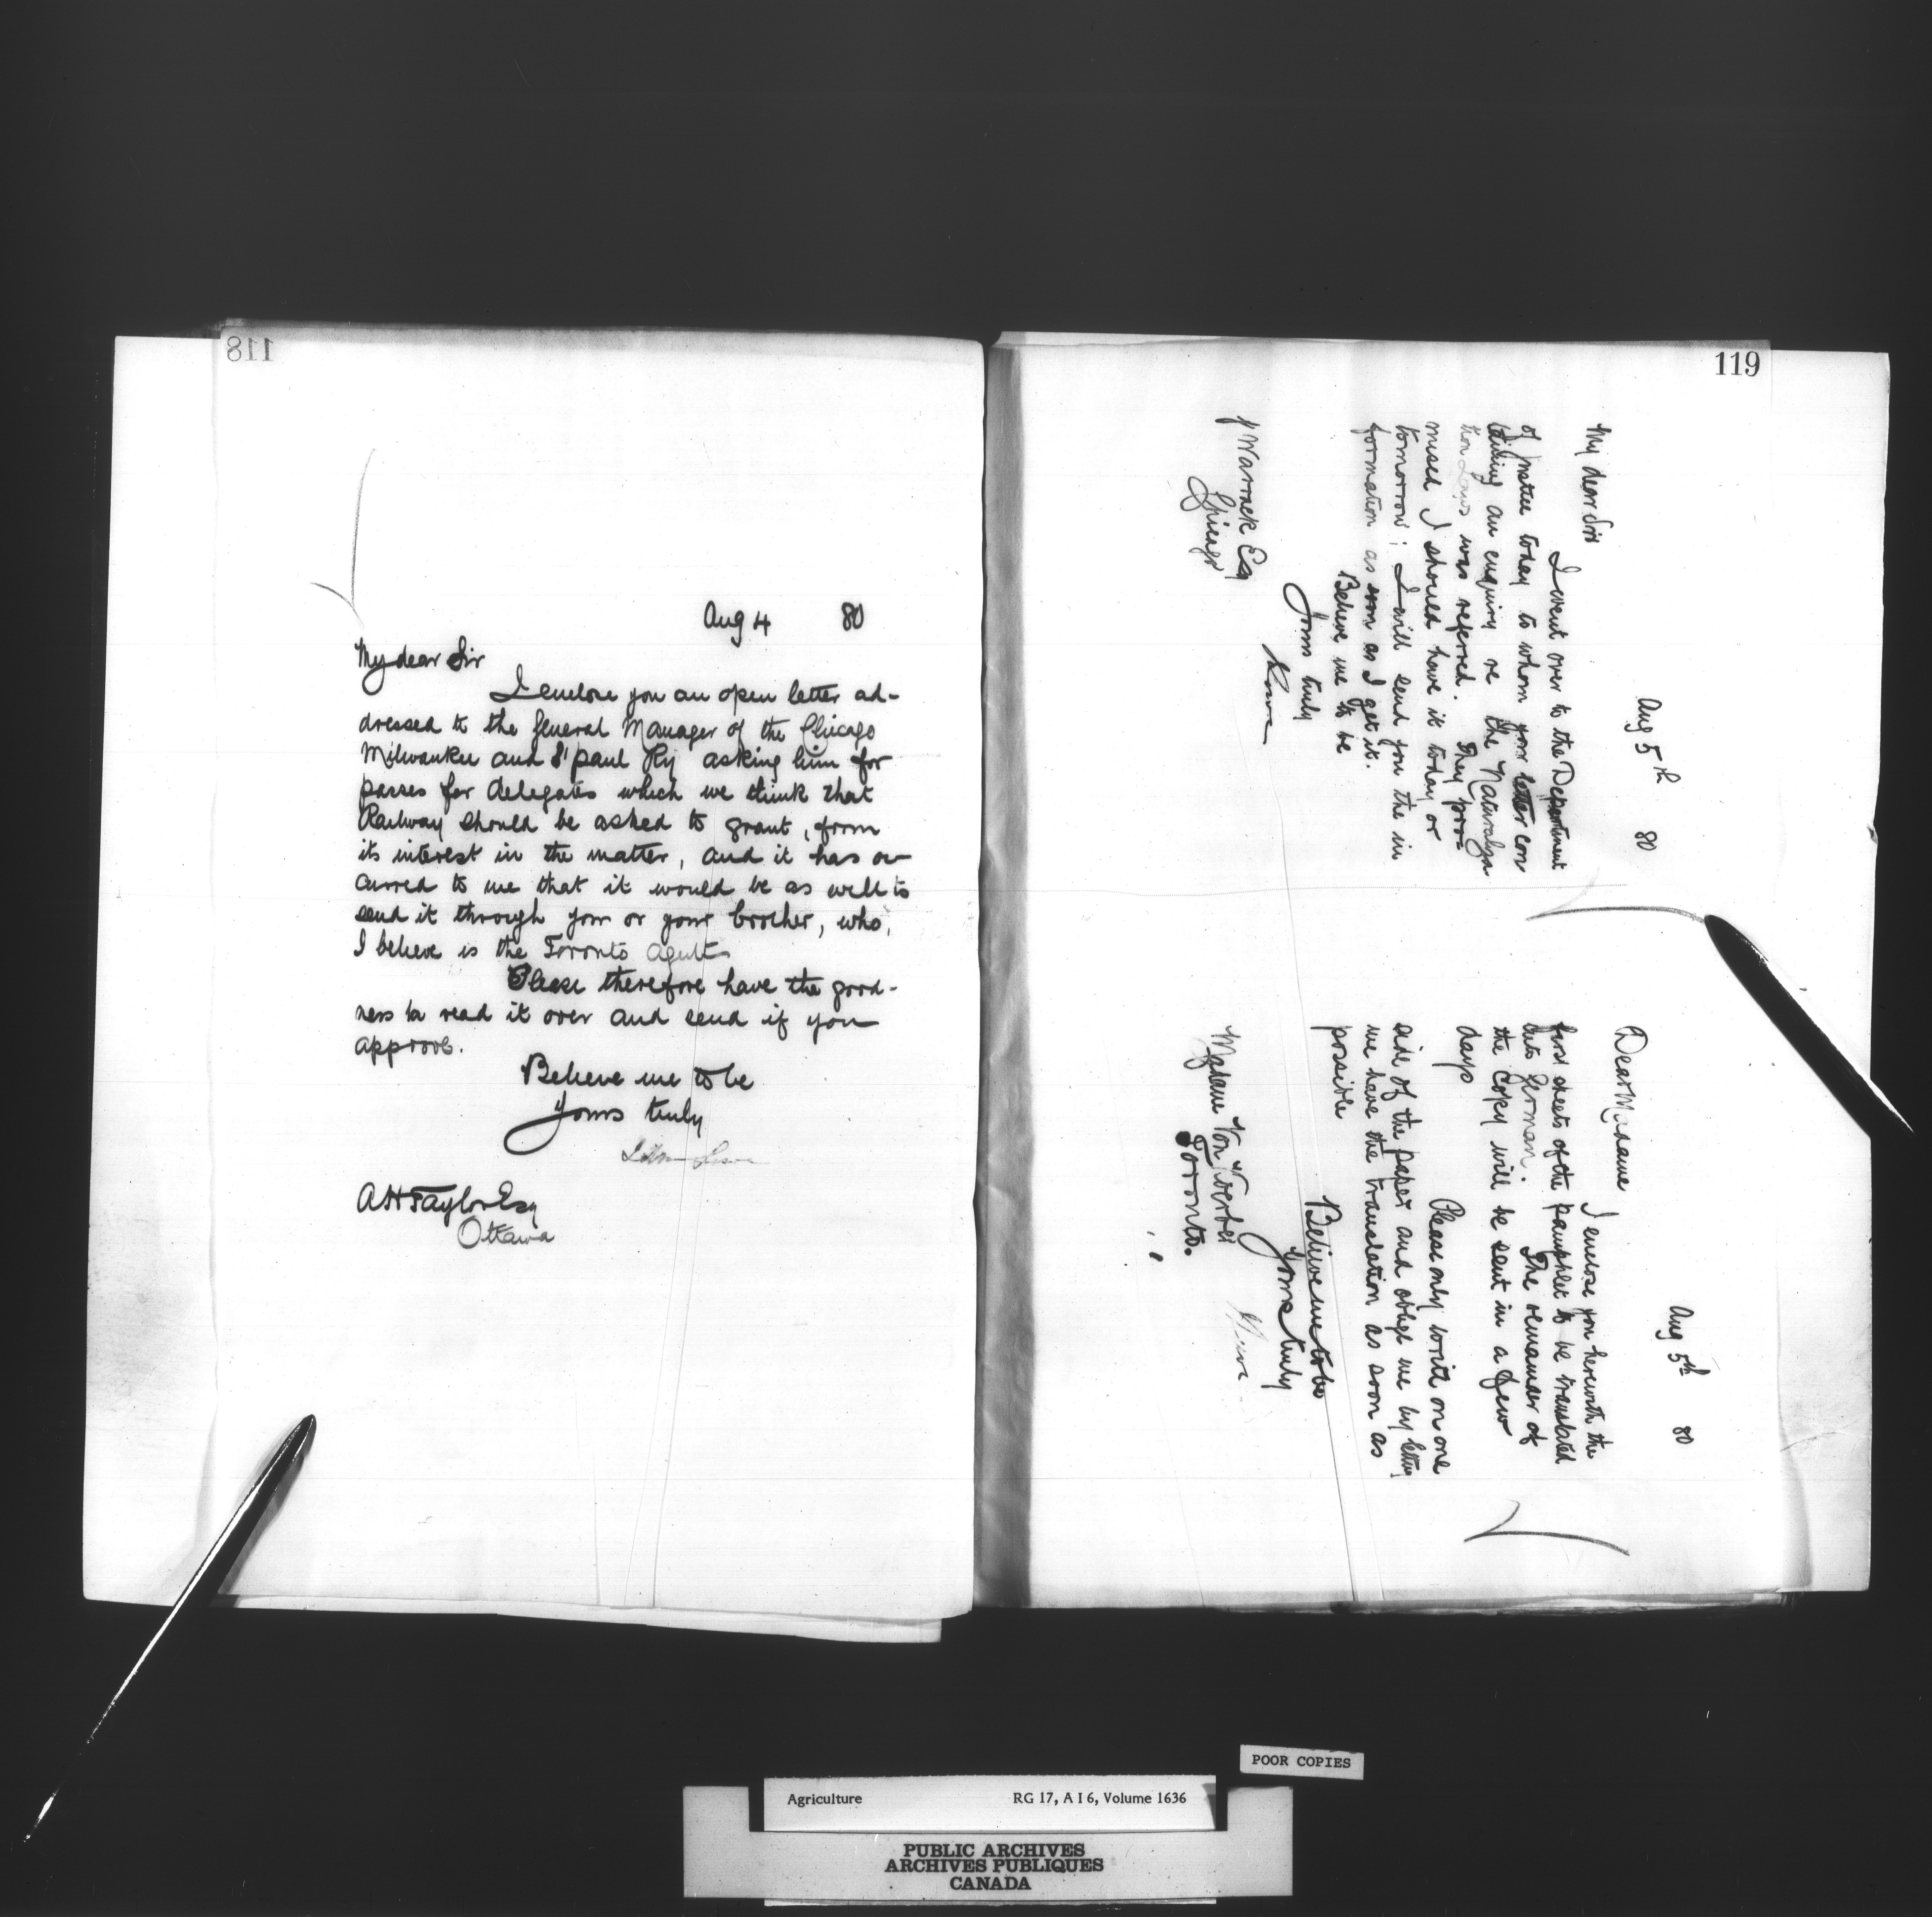 118
Aug 4 80
My dear Sir
I enclose you an open letter ad-
dressed to the General Manager of the Chicago
Milwaukee and St paul Ry asking him for
passes for delegates which we think that
Railway should be asked to grant, from
its interest in the matter, and it has oc
curred to me that it would be as well to
send it through you or your brother, who,
I believe is the Toronto Agent
Please therefore have the good-
ness to read it over and send if you
approve.
Believe me to be
Yours truly
A H Taylor Esq
Ottawa
119
Aug 5th 80
My dear Sir
I went over to the Department
of Justice today to whom your letter con
taining an enquiry re the Naturaliza
tion Laws was referred. They pro=
mised I should have it today or
tomorrow; I will send you the in
formation as soon as I get it.
Believe me to be
Yours truly
Lowe
J Warrack Esq
Chicago
Aug 5th 80
Dear Madame
I enclose you herewith the
first sheets of the pamphlet to be translated
into German. The remainder of
the Copy will be sent in a few
days
Please only write on one
side of the paper and oblige me by letting
me have the translation as soon as
possible
Believe me to be
Yours truly
Lowe
Madame Von Koerber
Toronto.
POOR COPIES
Agriculture RG 17, A I 6, Volume 1636
PUBLIC ARCHIVES
ARCHIVES PUBLIQUES
CANADA